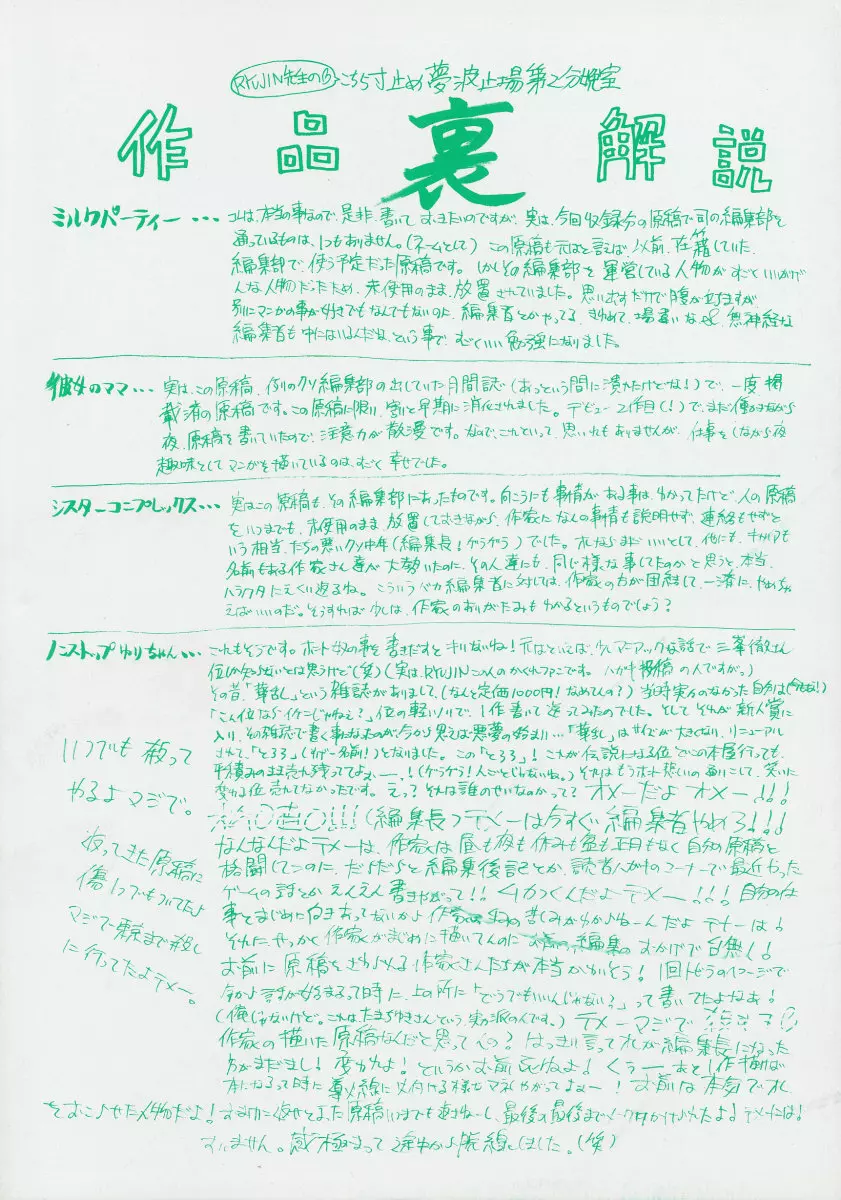 RYUJIN先生の こちら寸止め夢波止場第2分娩室
作品裏解説
ミルクパーティー・・・ は、本当の事なので、是非、書いておきたいのですが、実は、今回収録分の原稿で司の編集部を
通っているものは、1つもありません。(ネームとして) この原稿も元はと言えば、以前、在籍していた
編集部で、使う予定だった原稿です。しかしその編集部を運営している人物がすごいいいかげ
んな人物だったため、未使用のまま、放置されていました。思い出すだけで腹が立ちますが、
別にマンガの事が好きでもなんでもないのに、編集者とかやってる、きわめて、場違いな、無神経な
編集者も中にはいるんだね、という事で、すごくいい勉強になりました。
彼女のママ・・・ 実は、この原稿、例のクソ編集部の出していた月間誌(あっという間に潰れたけどな!)で、一度掲
載済の原稿です。この原稿に限り、割と早期に消化されました。デビュー2作目(!)で、まだ働きながら
夜、原稿を書いていたので、注意力が散漫です。なので、これといって、思い入れもありませんが、仕事をしながら夜
趣味としてマンガを描いているのは、すごく幸せでした。
シスターコンプレックス・・・ 実はこの原稿も、その編集部にあったものです。向こうにも事情がある事は、わかってたけど、人の原稿
をいつまでも、未使用のまま、放置しておきながら、作家になんの事情も説明せず、連絡もせずと
いう相当、たちの悪いクソ中年(編集長!ゲラゲラ)でした。オレならまだいいとして、他にも、
名前もある作家さん達が大勢いたのに、その人達にも、同じ様な事してたのかと思うと、本当、
ハラワタにえくい返るね。こういうバカ編集者に対しては、作家の方が団結して、一済に、やめちゃ
えばいいのだ。そうすれば少しは、作家のありがたみもわかるというものでしょう?
ノンストップゆりちゃん・・・ これもそうです。ホント奴の事を書きだすとキリないね!元はといえば、少しマニアックな話で三峯徹さん
位しか知らないとは思うけど(笑)(実は、RYUJINこの人のかくれファンです。ハガキ投稿の人ですが。)
その昔、「華乱」という雑誌がありまして、(なんと定価1000円!なめてんの?) 当時実力のなかった自分は(今もな!)
「こん位ならイケんじゃねえ?」位の軽いノリで、1作書いて送ってみたのでした。そして、それが新人賞に
入り、その雑誌で書く事になったのが、今から思えば悪夢の始まり・・・「華乱」はサイズが大きくなり、リニューアル
されて、「とろろ」(すげー名前!)となりました。この「とろろ」!これが伝説になる位どこの本屋行っても、
平積みのまま売れ残っててよぉー、!(ゲラゲラ!人ごとじゃないね。)それはもうホント悲しいの通りこして、笑いに
変わる位売れてなかったです。えっ?それは誰のせいなのかって?オメーだよオメー!!!
(編集長)テメーは今すぐ編集者やめろ!!!
なんなんだよテメーは、作家は昼も夜も休みも盆も正月もなく自分の原稿と
格闘してんのに、だらだらと編集後記とか、読者ハガキのコーナーで最近やった
ゲームの話とかえんえん書きやがって!!ムカつくんだよテメー!!!自分の仕
事とまじめに向きあってないから作家の苦しみがわからねーんだよテメーは!
それに、せっかく作家がまじめに描いてんのにお前の編集のおかげで台無し!
お前に原稿をさわられる作家さんたちが本当かわいそう!1回トビラのイメージで
今から話が始まるって時に、上の所に「どうでもいいんじゃない?」って書いてたよなあ!
(俺じゃないけど。これは、たまちゆきさんという、実力派の人です。)テメーマジで
作家の描いた原稿なんだと思ってんの?はっきり言ってオレが編集長になった
方がまだまし!変われよ!というかお前死ねよ!くぅー、あと1作描けば
本になるって時に
をおこらせた人物だよ!おまけに返せと言った原稿いつまでも返さねーし、最後の最後まで
すいません。感極まって途中から脱線しました。(笑)
いつでも殺って
やるよマジで。
返ってきた原稿に
傷1つでもついてたら
マジで東京まで殺し
に行ってたよテメー。